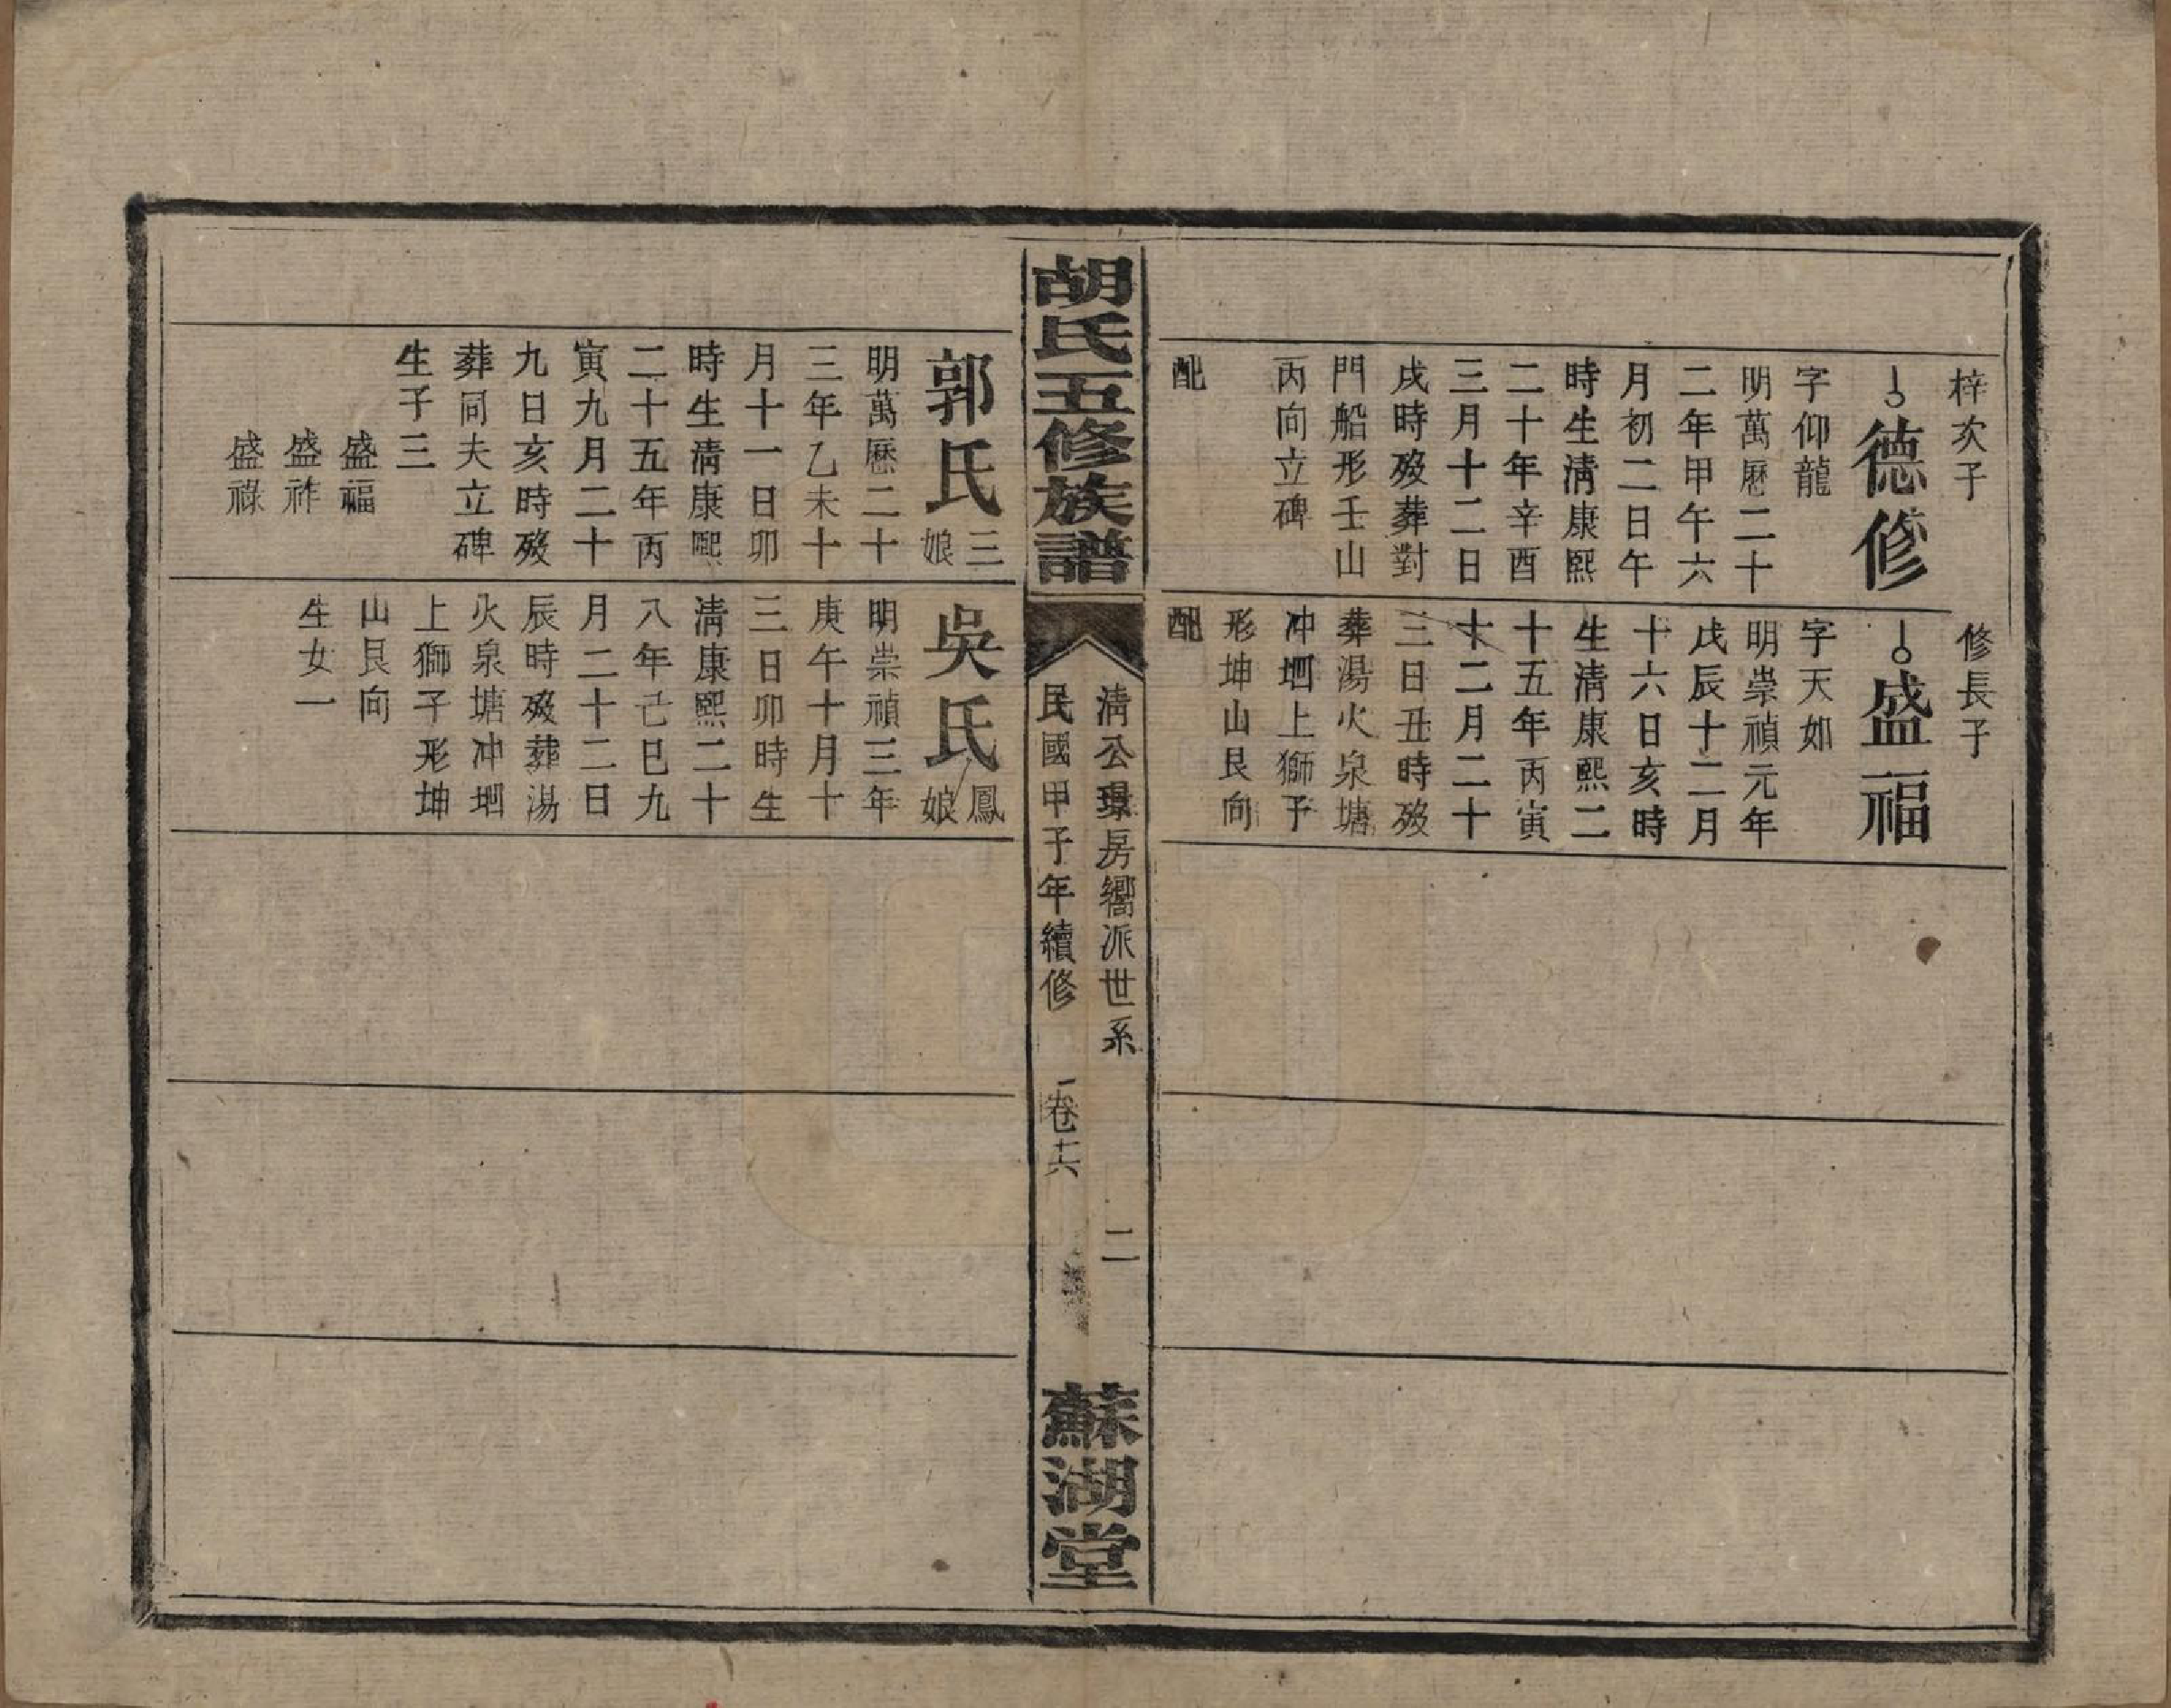 梓次子
德修
字仰龍
明萬曆二十
二年甲午六
月初二日午
時生清康熙
二十年辛酉
三月十二日
戌時歿葬對
門船形壬山
丙向立碑
配
修長子
盛福
字天如
明崇禎元年
戊辰十二月
十六日亥時
生清康熙二
十五年丙寅
十二月二十
三日丑時歿
葬湯火泉塘
冲垇上獅子
形坤山艮向
配
胡氏五修族譜
清公璟房嚮派世系
二
民國甲子年續修
卷十六
蘇湖堂
郭氏三娘
明萬曆二十
三年乙未十
月十一日卯
時生清康熙
二十五年丙
寅九月二十
九日亥時歿
葬同夫立碑
生子三
盛福
盛祚
盛祿
吳氏鳳娘
明崇禎三年
庚午十月十
三日卯時生
清康熙二十
八年己巳九
月二十二日
辰時歿葬湯
火泉塘冲垇
上獅子形坤
山艮向
生女一